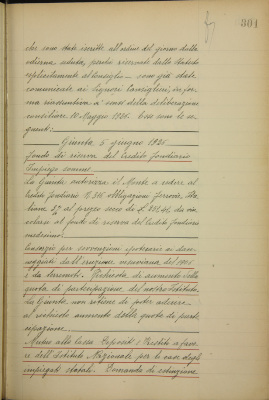 301
che sono state iscritte all'ordine del giorno della
odierna seduta, perchè riservate dallo Statuto
esplicitamente al Consiglio - sono già state
comunicate ai Signori Consiglieri, in for
ma riassuntiva a' sensi della deliberazione
consiliare 10 Maggio 1926. Esse sono le se
guenti:
Giunta 5 giugno 1926.
Fondo di riserva del Credito fondiario
Impiego somme
La Giunta autorizza il Monte a cedere al
Credito fondiario N. 310 obbligazioni ferrov. Ita
liane 3% al prezzo secco di da vin
colarsi al fondo di riserva del Credito fondiario
medesimo.
Consorzio per sovvenzioni ipotecarie ai dan
neggiati dall'eruzione vesuviana del 1906
e da terremoti. Richiesta di aumento della
quota di partecipazione del nostro Istituto.
La Giunta non ritiene di poter aderire
al richiesto aumento della quota di parte
cipazione.
Mutuo alla Cassa Depositi e Prestiti a favo
re dell'Istituto Nazionale per le case degli
impiegati statali. Domanda di estinzione